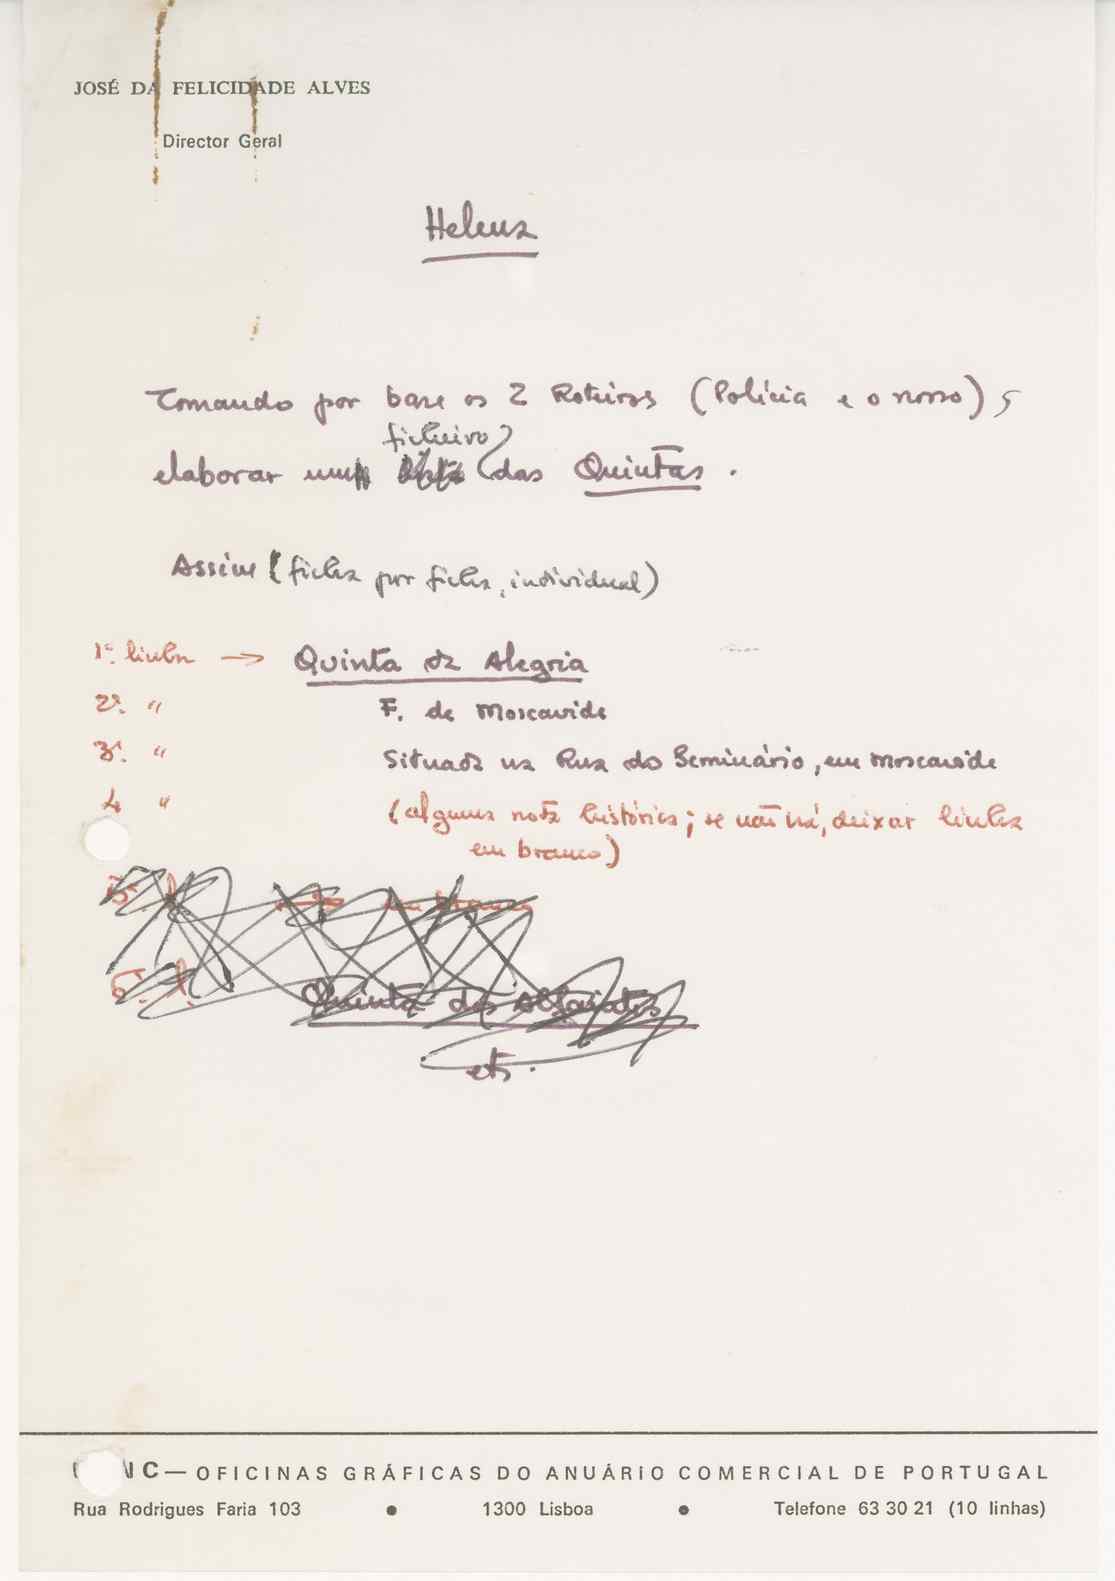 JOSÉ DA FELICIDADE ALVES
Director Geral
Helena
Tomando por base os 2 Roteiros (Polícia e o nosso),
ficheiro
elaborar um das Quintas.
Assim (ficha por ficha, individual)
1ª. linha → Quinta da Alegria
2ª. " F. de Moscavide
3ª. " Situada na Rua do Seminário, em Moscavide
4 " (alguma nota histórica; se não há, deixar linha
em branco)
5ª. em branco
6ª. Quinta dos Alfaiates
etc.
C — OFICINAS GRÁFICAS DO ANUÁRIO COMERCIAL DE PORTUGAL
Rua Rodrigues Faria 103 • 1300 Lisboa • Telefone 63 30 21 (10 linhas)